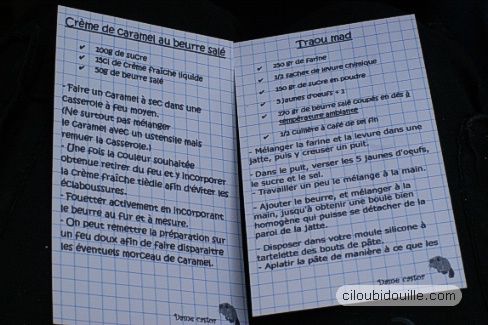 Crème de caramel au beurre salé
100g de sucre
15cl de crème fraîche liquide
50g de beurre salé
- Faire un caramel à sec dans une
casserole à feu moyen.
(Ne surtout pas mélanger
le caramel avec un ustensile mais
remuer la casserole.)
- Une fois la couleur souhaitée
obtenue retirer du feu et y incorporer
la crème fraîche tiède afin d'éviter les
éclaboussures.
- Fouetter activement en incorporant
le beurre au fur et à mesure.
- On peut remettre la préparation sur
un feu doux afin de faire disparaitre
les éventuels morceau de caramel.
Dame castor
Traou mad
250 gr de farine
1/2 sachet de levure chimique
150 gr de sucre en poudre
5 jaunes d'oeufs + 1
170 gr de beurre salé coupés en dés à
température ambiante
1/2 cuillère à café de sel fin
- Mélanger la farine et la levure dans une
jatte, puis y creuser un puit.
- Dans le puit, verser les 5 jaunes d'oeufs,
le sucre et le sel.
- Travailler un peu le mélange à la main.
- Ajouter le beurre, et mélanger à la
main, jusqu'à obtenir une boule bien
homogène qui puisse se détacher de la
paroi de la jatte.
- Disposer dans votre moule silicone à
tartelette des bouts de pâte.
- Aplatir la pâte de manière à ce que les
Dame castor
ciloubidouille.com